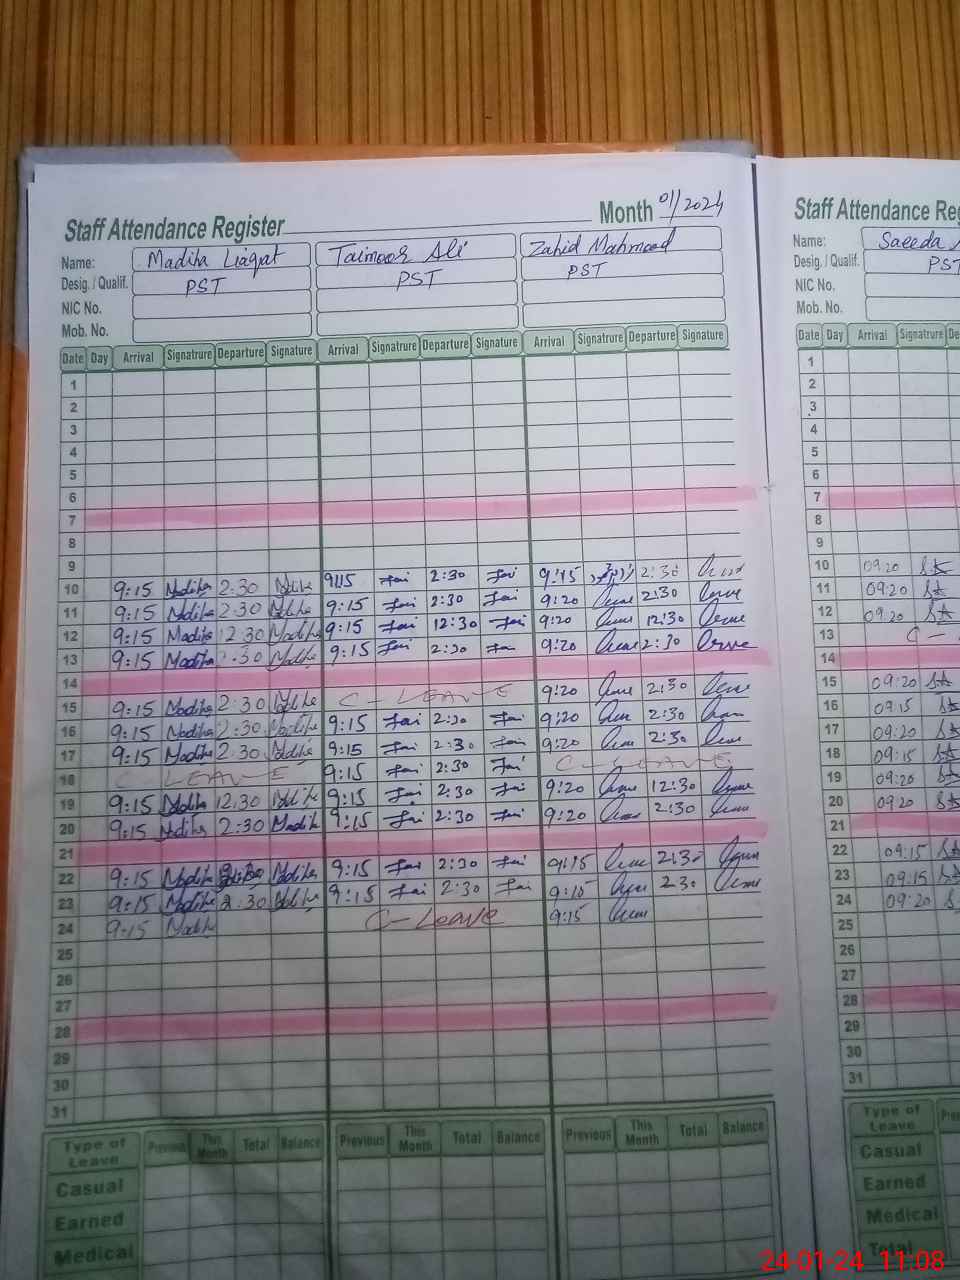 Staff Attendance Register Month 01/2024
Name: Madiha Liaqat Taimoor Ali Zahid Mahmood
Desig. / Qualif. PST PST PST
NIC No.
Mob. No.
Date Day Arrival Signatrure Departure Signature Arrival Signatrure Departure Signature Arrival Signatrure Departure Signature
1
2
3
4
5
6
7
8
9
10 9:15 Madiha 2:30 Madiha 9:15 2:30 9:15 2:30
11 9:15 Madiha 2:30 Madiha 9:15 2:30 9:20 2:30
12 9:15 Madiha 12:30 Madiha 9:15 12:30 9:20 12:30
13 9:15 Madiha 2:30 Madiha 9:15 2:30 9:20 2:30
14
15 9:15 Madiha 2:30 Madiha C-LEAVE 9:20 2:30
16 9:15 Madiha 2:30 Madiha 9:15 2:30 9:20 2:30
17 9:15 Madiha 2:30 Madiha 9:15 2:30 9:20 2:30
18 C-LEAVE 9:15 2:30 C-LEAVE
19 9:15 Madiha 12:30 Madiha 9:15 2:30 9:20 12:30
20 9:15 Madiha 2:30 Madiha 9:15 2:30 9:20 2:30
21
22 9:15 Madiha Madiha 9:15 2:30 9:15 2:30
23 9:15 Madiha 2:30 Madiha 9:15 2:30 9:15 2:30
24 9:15 Madiha C-Leave 9:15
25
26
27
28
29
30
31
Type of Leave Previous This Month Total Balance Previous This Month Total Balance Previous This Month Total Balance
Casual
Earned
Medical
Staff Attendance Reg
Name: Saeeda
Desig. / Qualif. PST
NIC No.
Mob. No.
Date Day Arrival Signatrure De
1
2
3
4
5
6
7
8
9
10 09:20
11 09:20
12 09:20
13 C-
14
15 09:20
16 09:15
17 09:20
18 09:15
19 09:20
20 09:20
21
22 09:15
23 09:15
24 09:20
25
26
27
28
29
30
31
Type of Leave Prev
Casual
Earned
Medical
Total
24-01-24 11:08